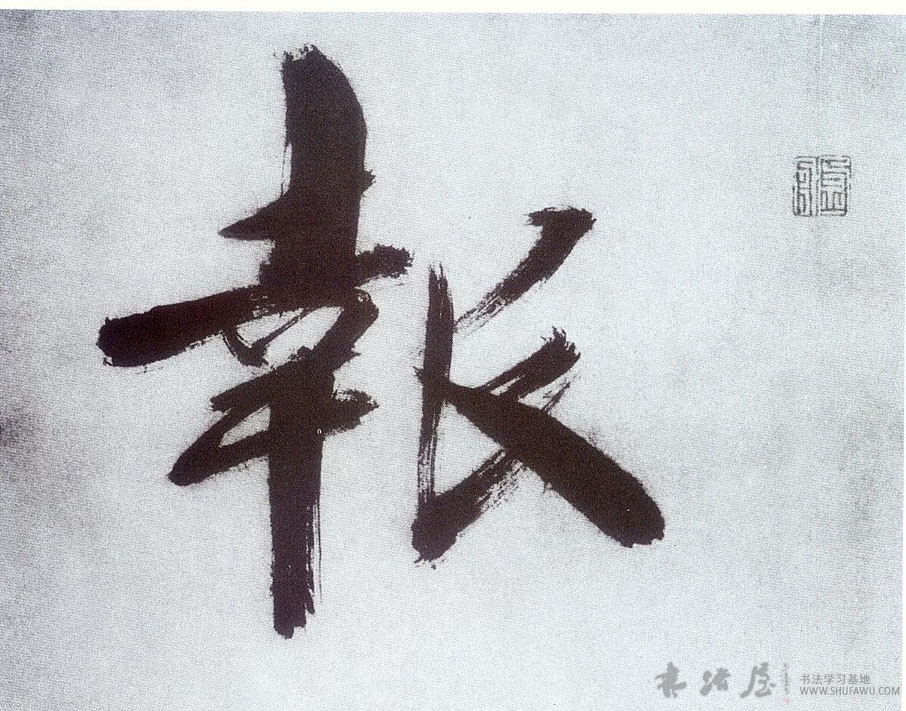 報
书法屋
书法学习基地
WWW.SHUFAWU.COM